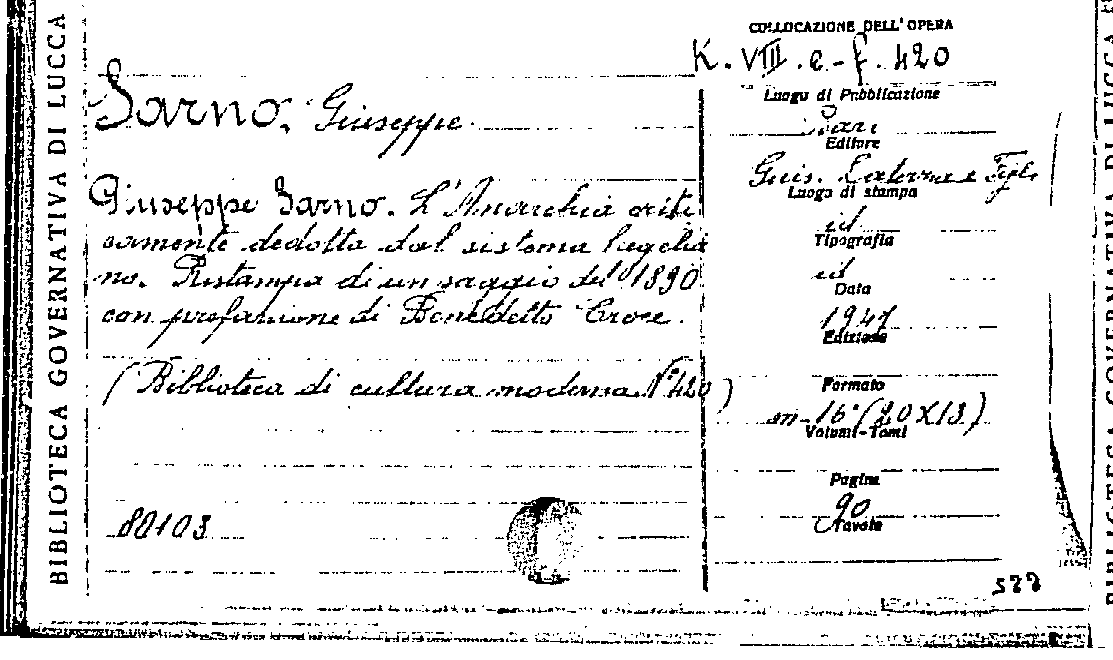 BIBLIOTECA GOVERNATIVA DI LUCCA
COLLOCAZIONE DELL'OPERA
K. VIII. e-f. 420
Sarno, Giuseppe
Giuseppe Sarno. L'Anarchia criti
camente dedotta dal sistema hegelia
no. Ristampa di un saggio del 1890
con prefazione di Benedetto Croce.
(Biblioteca di cultura moderna. N° 420)
80103
Luogo di Pubblicazione
Bari
Editore
Gius. Laterza e Figli
Luogo di stampa
id
Tipografia
id
Data
1947
Edizione
Formato
in-16° (20X13)
Volumi-Tomi
Pagine
90
Tavole
577